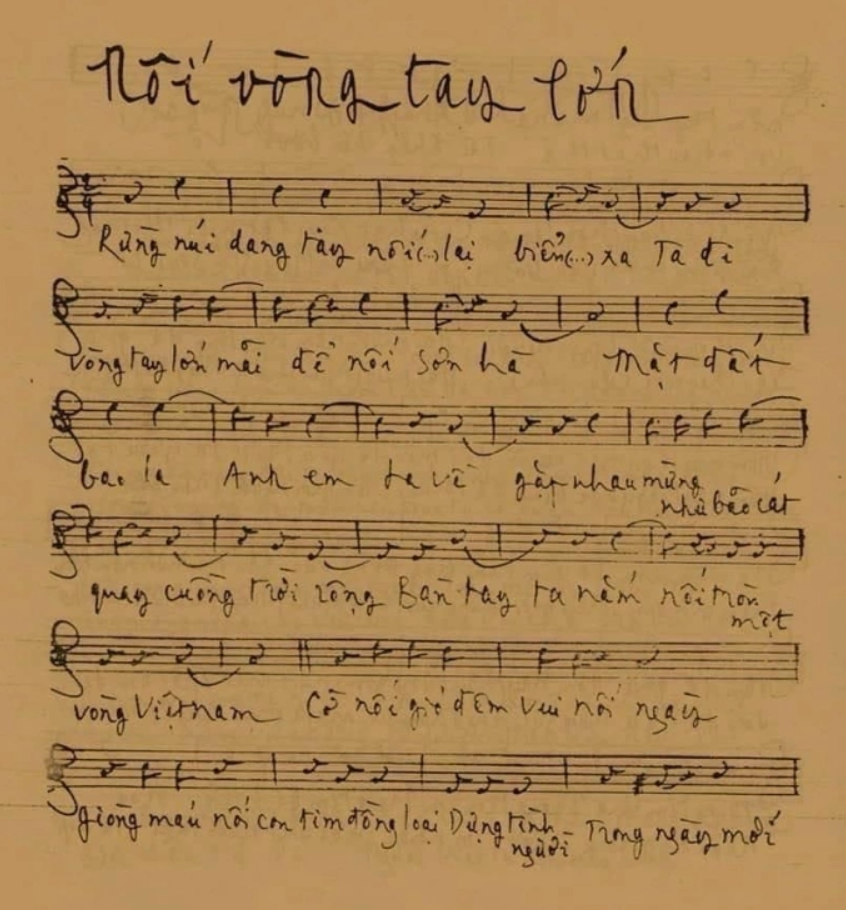 Nối vòng tay lớn
Rừng núi dang tay nối(..)lại biển(...) xa Ta đi
vòng tay lớn mãi để nối sơn hà Mặt đất
bao la Anh em ta về gặp nhau mừng
như bão cát
quay cuồng trời rộng Bàn tay ta nắm nối tròn
một
vòng Việt nam Cờ nối gió đêm vui nối ngày
giòng máu nối con tim đồng loại Dựng tình
người Trong ngày mới